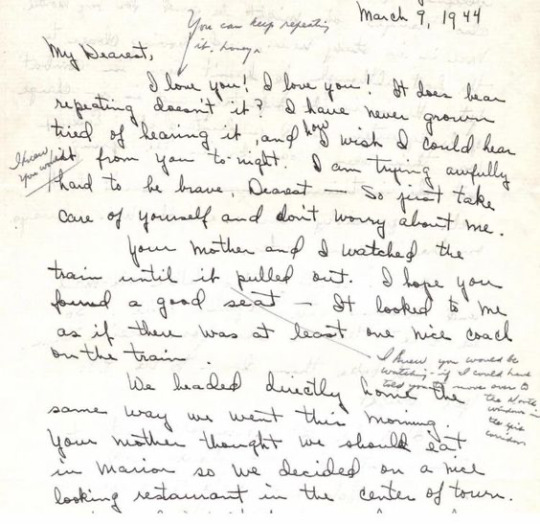 March 9, 1944
You can keep repeating
it, honey.
My Dearest,
I love you! I love you! It does bear
repeating doesn't it? I have never grown
tired of hearing it, and how I wish I could hear
I knew
you would
it from you to-night. I am trying awfully
hard to be brave, Dearest — So just take
care of yourself and don't worry about me.
Your Mother and I watched the
train until it pulled out. I hope you
found a good seat — It looked to me
as if there was at least one nice coach
on the train.
I knew you would be
watching - if I could have
told you to move over to
the North
window in
the
We headed directly home the
same way we went this morning.
Your mother thought we should eat
in Marion so we decided on a nice
looking restaurant in the center of town.